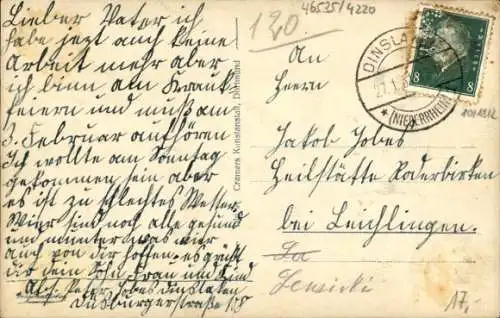 Lieber Vater ich
habe jezt auch keine
Arbeit mehr aber
ich bin am Krank
feiern und muß am
3. Februar aufhören
Ich wollte am Sonntag
gekommen sein aber
es ist zu schlechtes Wetter.
Wier sind noch alle gesund
und munter was wier
auch von dir hoffen. es grüßt
dir dein Sohn Frau und Kind
Abs. Peter Jobes Dinslaken
Duisburgerstraße 108
Cramers Kunstanstalt, Dortmund
120
46525/4220
DINSLAKEN
(NIEDERRHEIN)
8 8
An
Herrn
Jakob Jobes
Heilstätte Roderbirken
bei Leichlingen.
17,-